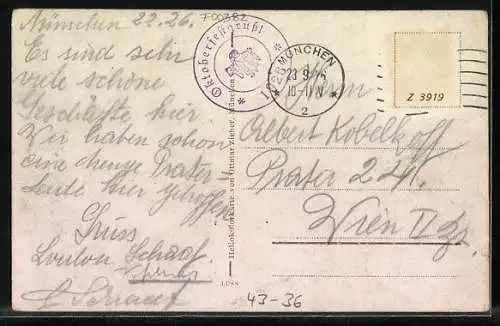 München 22.26.
Es sind sehr
viele schöne
Geschäfte hier
Wir haben schon
eine menge Prater-
Leute hier getroffen
Gruss
Schaaf
700382
Oktoberfestgruß! 1926
MÜNCHEN
23.9.26
10-11 N
2
Z 3919
Herrn
Albert Kobelkoff
Prater 221.
Wien II
Heliokolorkarte von Ottmar Zieher, München
43-36